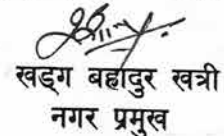 खड्ग बहादुर खत्री
नगर प्रमुख